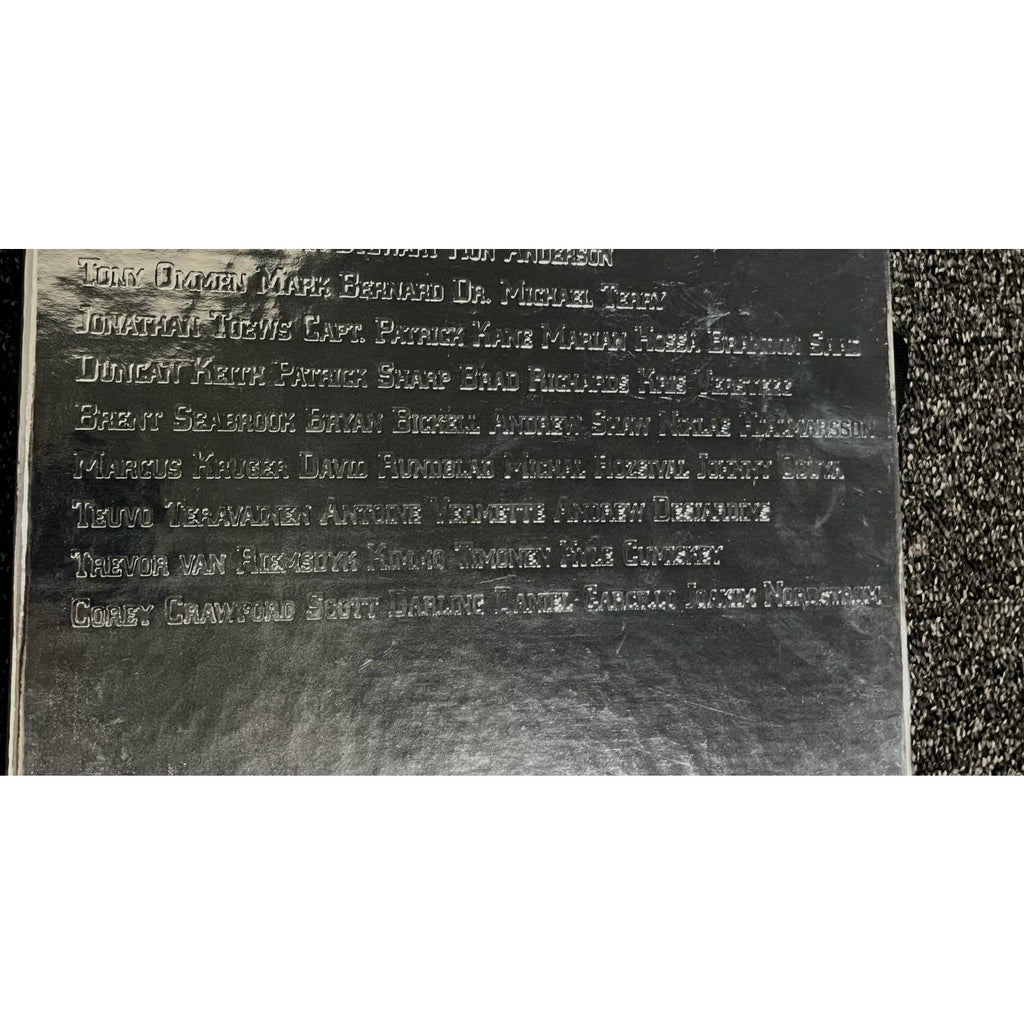 Stewart Ron Anderson
Tony Ommen Mark Bernard Dr. Michael Terry
Jonathan Toews Capt. Patrick Kane Marian Hossa Brandon Saad
Duncan Keith Patrick Sharp Brad Richards Kris Versteeg
Brent Seabrook Bryan Bickell Andrew Shaw Niklas Hjalmarsson
Marcus Kruger David Rundblad Michal Rozsival Johnny Oduya
Teuvo Teravainen Antoine Vermette Andrew Desjardins
Trevor van Riemsdyk Kimmo Timonen Kyle Cumiskey
Corey Crawford Scott Darling Daniel Carcillo Joakim Nordstrom